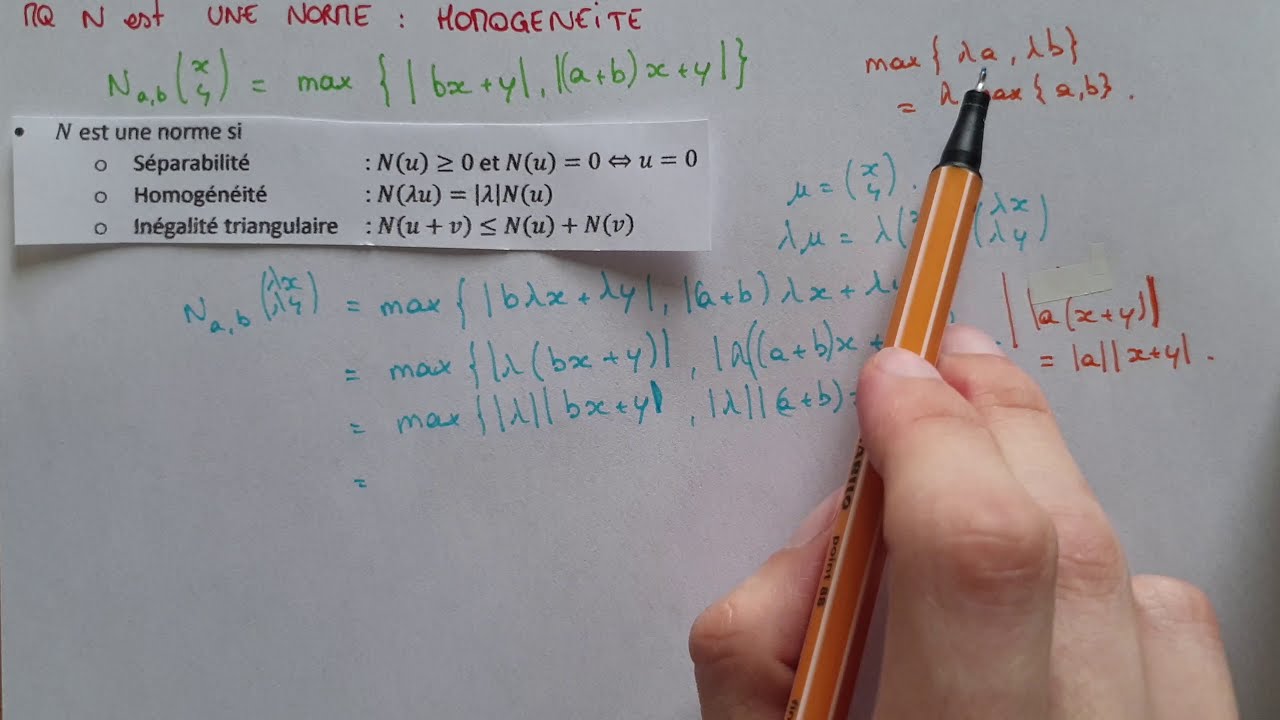 MQ N est UNE NORME : HOMOGENEITE
N_{a,b} (x y) = max { | bx+y| , |(a+b) x+y| }
max { λa , λb}
= λ max { a,b} .
• N est une norme si
o Séparabilité : N(u) ≥ 0 et N(u) = 0 ⇔ u = 0
o Homogénéité : N(λu) = |λ|N(u)
o Inégalité triangulaire : N(u + v) ≤ N(u) + N(v)
u = (x y) .
λu = λ( (λx λy)
N_{a,b} (λx λy) = max { | bλx + λy| , |(a+b) λx +
= max { |λ (bx+y)| , |λ((a+b)x +
= max { |λ| | bx+y| , |λ| | (a+b)
=
|a(x+y)|
= |a| |x+y| .
STABILO
point 88